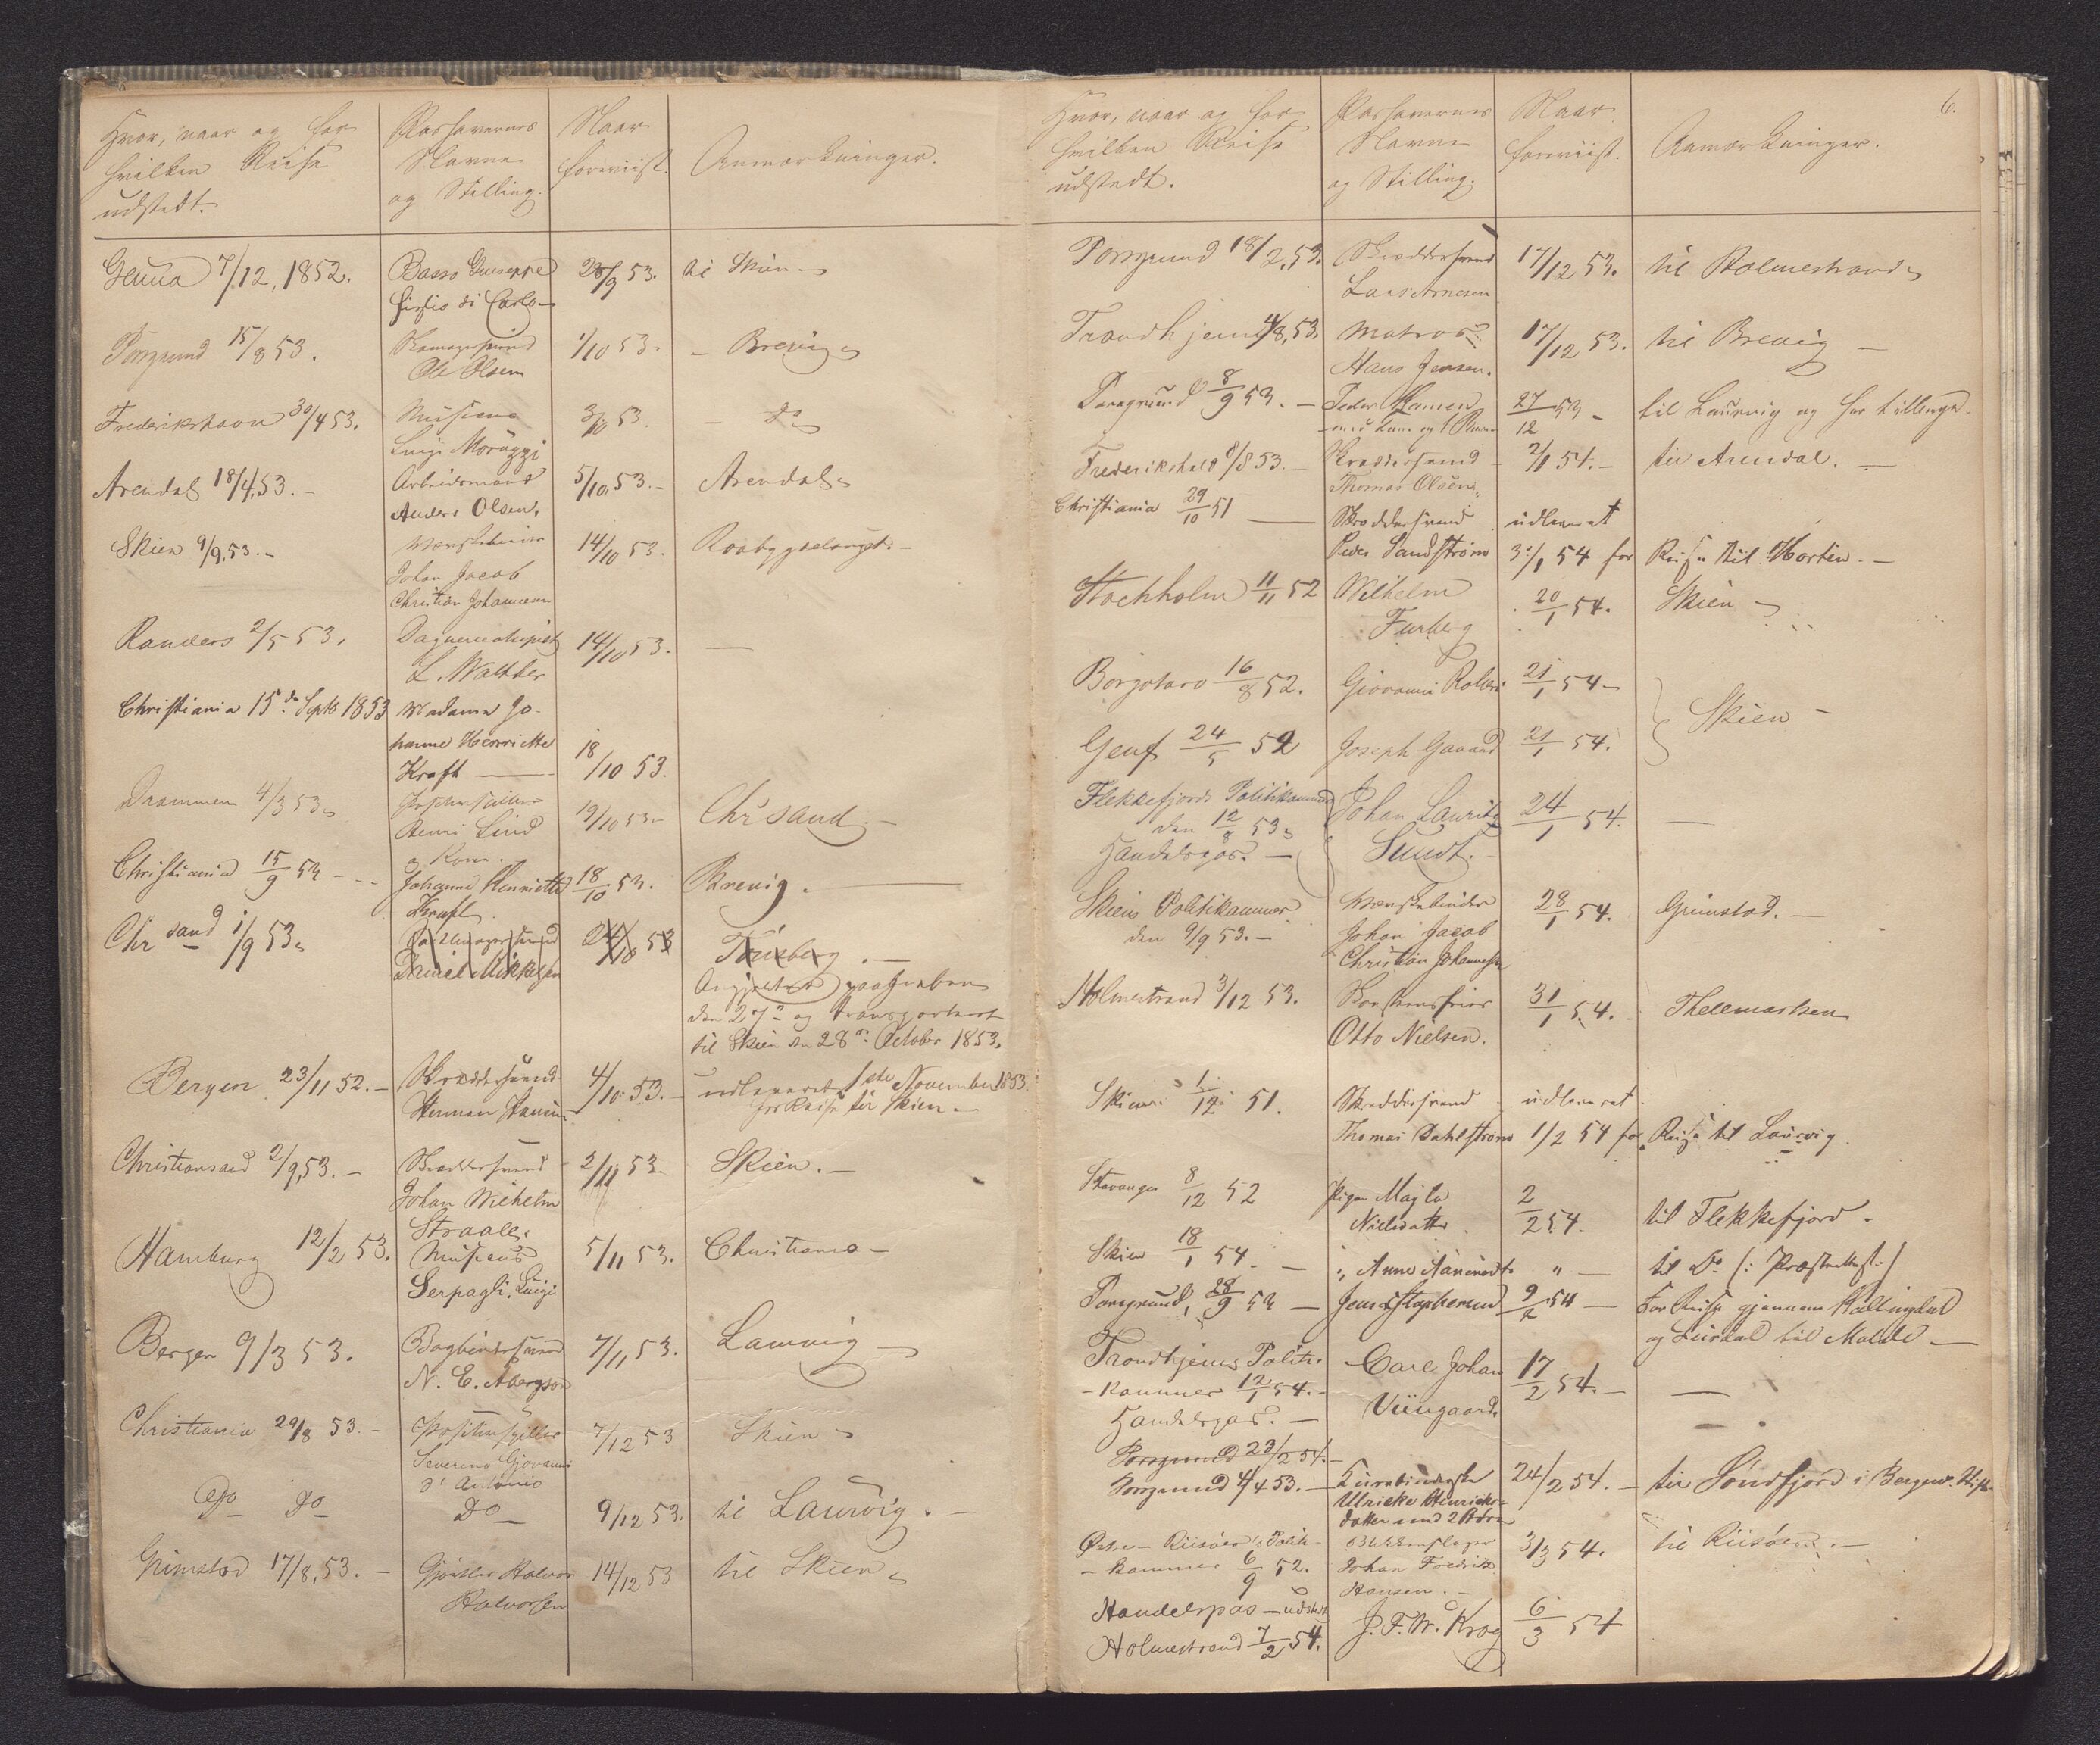 Hvor, naar og for
hvilken Reise
udstedt.
Pashavernes
Navne
og Stilling.
Naar
foreviist.
Anmærkninger.
Genua 7/12, 1852.
Basso Guiseppe
figlio di Carlo
26/9 53.
til Skien
Porsgrund 15/8 53.
Ole Olsen
1/10 53.
- Brevig
Frederikshavn 30/4 53.
Musicus
Luigi Moruzzi
3/10 53.
- Do
Arendal 18/4, 53.-
Arbeidsmand
Anders Olsen.
5/10, 53.-
Arendal
Skien 9/9, 53.-
Væverskebinder
Johan Jacob
Christian Johannesen
14/10 53.
Raabygdelauget.-
Randers 2/5 53.
Daguerreotypist
L. Walther
14/10 53.
—
Christiania 15de Septb 1853
Madame Jo-
hanne Henriette
Kraft ——
18/10 53.
Drammen 4/3 53
Henri Lind
og Kone.
19/10 53.-
Chrsand.-
Christiania 15/9 53 - - -
Johanne Henriette
Kraft
18/10 53.
Brevig. ——
Chr sand 1/9 53
Daniel Mikkelsen
24/10 53
Tönsberg.-
den 27de og transporteret
til Skien den 28de October 1853.
Bergen 23/11 52.-
Skræddersvend
Herman Hansen
4/10 53.-
udleveret 1ste November 1853
for Reise til Skien.-
Christiansand 2/9, 53.-
Skræddersvend
Johan Wilhelm
Straale.
2/11 53.
Skien.-
Hamburg 12/2 53.
Musicus
Serpagli, Luigi
5/11 53.
Christiania-
Bergen 9/3 53.
Bogbindersvend
N. E. Abergson
7/11 53.
Laurvig
Christiania 29/8 53.-
Positivspiller
Severino Giovanni
d' Antonio
7/12 53
Skien
Do Do
Do
9/12 53.
til Laurvig.-
Grimstad 17/8, 53.-
Gjörtler Halvor
Halvorsen
14/12 53
til Skien
6.
Hvor, naar og for
hvilken Reise
udstedt.
Pashavernes
Navne
og Stilling.
Naar
foreviist.
Anmærkninger.
Porsgrund 18/2, 53.
Skræddersvend
Lars Arnesen
17/12 53.
til Holmestrand
Trondhjem 4/8, 53.
Matros
Hans Jensen.
17/12 53.
til Brevig —
Porsgrund 8/9 53.-
Peder Hansen
27/12 53 -
til Laurvig og
Frederikshald 8/8 53.-
Skræddersvend
Thomas Olsen
2/1 54.-
til Arendal. —
Christiania 29/10 51 ——
Skræddersvend
Peder Sandström
udleveret
3/1 54 for
Reise til Horten.-
Stockholm 11/11 52
Wilhelm
Furberg
20/1 54.
Skien
Borgotaro 16/8 52.
Giovanni
21/1 54-
Genf 24/5 52
Joseph
21/1 54.
Skien -
Flekkefjords Politikammer
den 12/8 53
Handelspas.-
Johan Lauritz
Sundt.-
24/1 54.
—
Skiens Politikammer
den 9/9 53.-
Væverskebinder
Johan Jacob
Christian Johannesen
28/1 54.
Grimstad.-
Holmestrand 3/12 53.
Skorstensfeier
Otto Nielsen.
31/1 54.-
Thelemarken
Skien 1/12 51.
Skræddersvend
Thomas Dahlström
udleveret
1/2 54 for
Reise til Laurvig.
Stavanger 8/12 52
Pigen Majta
Nielsdatter
2/2 54.
til Flekkefjord.
Skien 18/1 54.-
" —
til Do
Porsgrund, 28/9 53 -
9/2 54 -
For Reise gjennem Hallingdal
og Leirdal til Molde —
Trondhjems Politi-
- kammer 12/1 54.-
Handelspas.-
Carl Johan
Viingaard.
17/2 54.-
—
Porsgrund 23/2 54.-
Porsgrund 4/4 53.-
Ulrikke Henriks-
datter med 2 Börn
24/2 54.-
til Söndfjord i Bergens Stift
Öster-Riisöers Politi-
- kammer 6/9 52.
Blikkenslager
Johan Fredrik
Hansen.-
3/3 54.
til Riisöer.-
Handelspas - udstedt
Holmestrand 7/2 54.
J. F. W. Krog
6/3 54